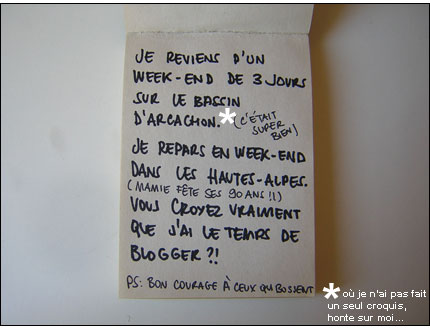 JE REVIENS D'UN
WEEK-END DE 3 JOURS
SUR LE BASSIN
D'ARCACHON.* (C'ÉTAIT SUPER BIEN)
JE REPARS EN WEEK-END
DANS LES HAUTES-ALPES.
(MAMIE FÊTE SES 90 ANS !!)
VOUS CROYEZ VRAIMENT
QUE J'AI LE TEMPS DE
BLOGGER ?!
PS: BON COURAGE À CEUX QUI BOSSENT
* où je n'ai pas fait
un seul croquis,
honte sur moi...